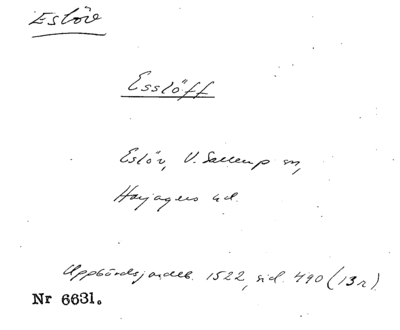 Eslöv
Esslöff
Eslöv, V. Sallerup sn,
Harjagers hd.
Uppbördsjordeb. 1522, sid. 490 (13r).
Nr 6631.